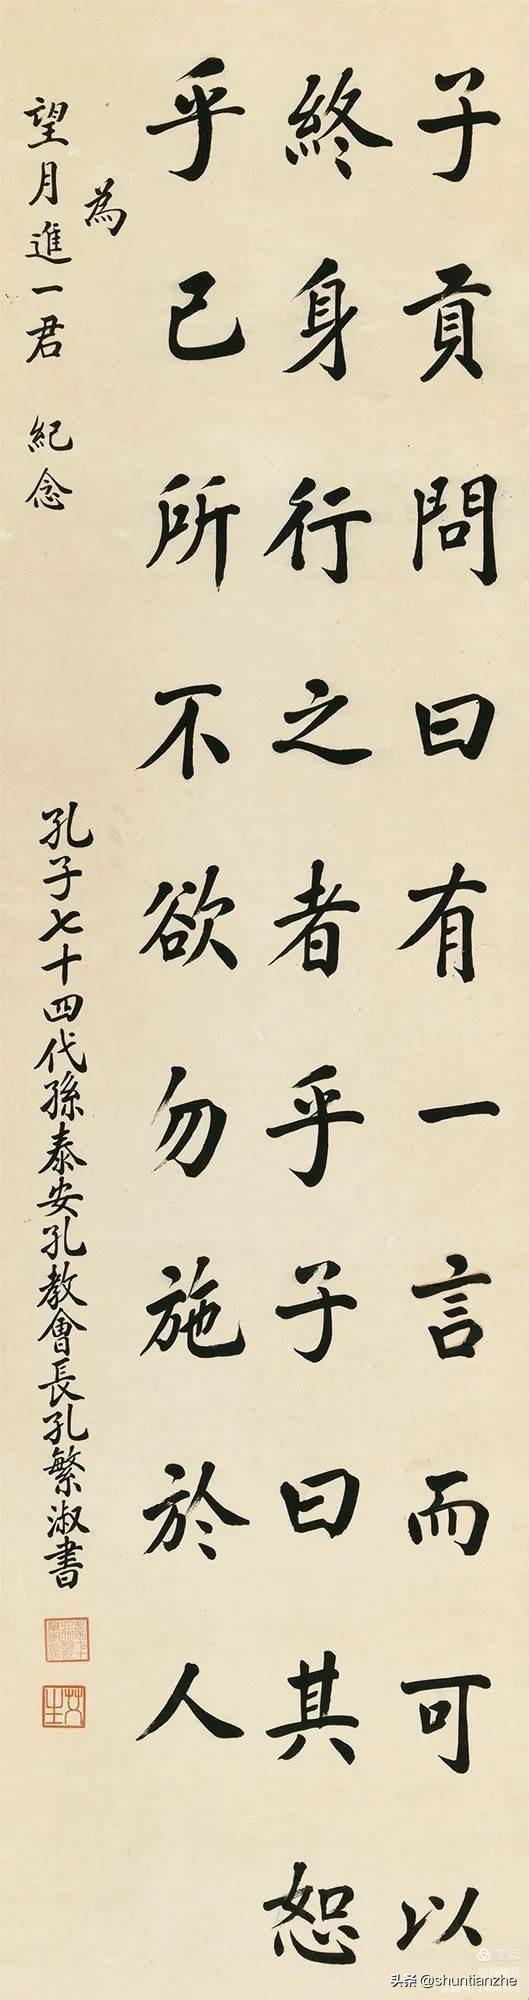 子貢問曰有一言而可以
終身行之者乎子曰其恕
乎己所不欲勿施於人
為
望月進一君 紀念
孔子七十四代孫泰安孔教會長孔繁淑書
头条 @shuntianzhe